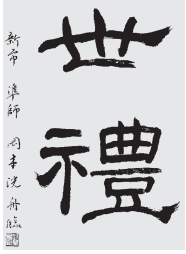 世禮
新市 準師 岡本洸舟臨